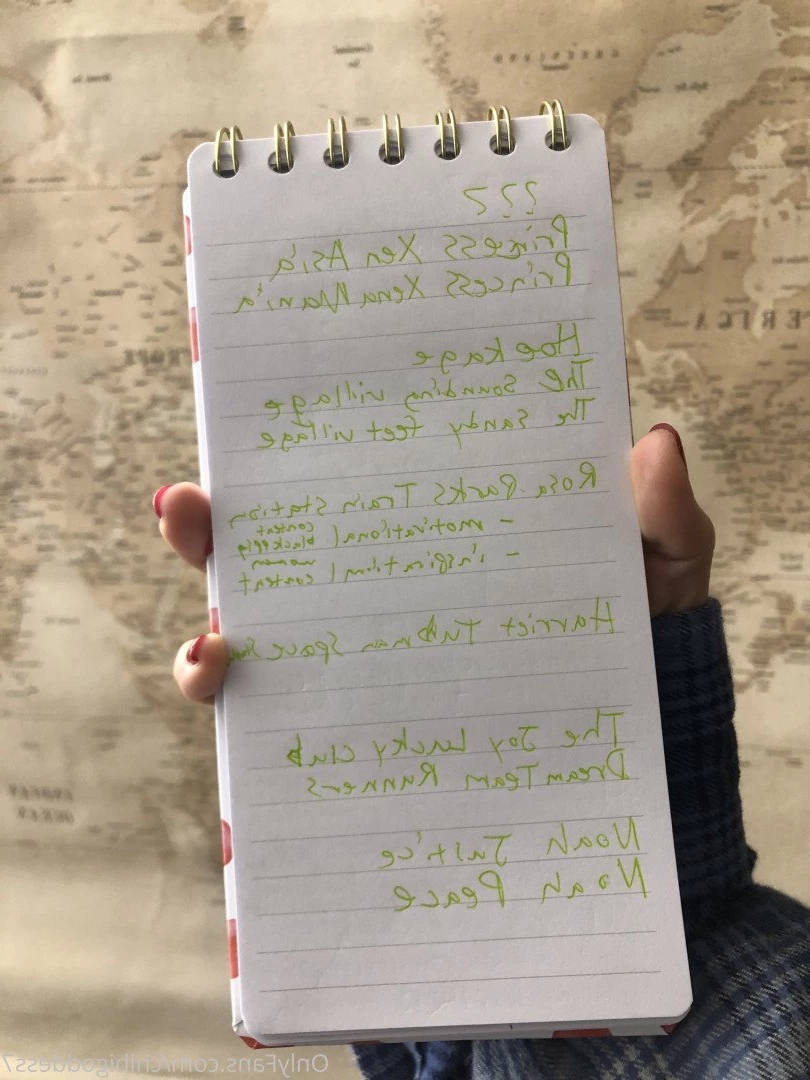 GREENLAND
ERICA
EUROPE
INDIAN
OCEAN
???
Princess Xen Asia
Princess XenaMania
Hoe kage
The Sounding village
The Sandy feet village
Rosa Parks Train station
- motivational content
black eyig
women
- inspirational content
Harriet Tubman Space
The Joy Lucky club
Dream Team Runners
Noah Justice
Noah Peace
OnlyFans.com/chibigoddess7